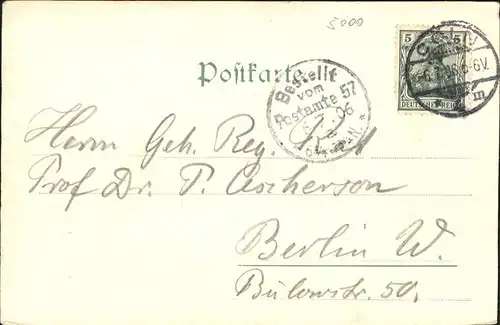 5000
5 5
DEUTSCHES REICH
Postkarte
Bestellt
vom
Postamte 57
06
Herrn Geh. Reg. Rat
Prof Dr. P. Ascherson
Berlin W.
Bülowstr. 50.